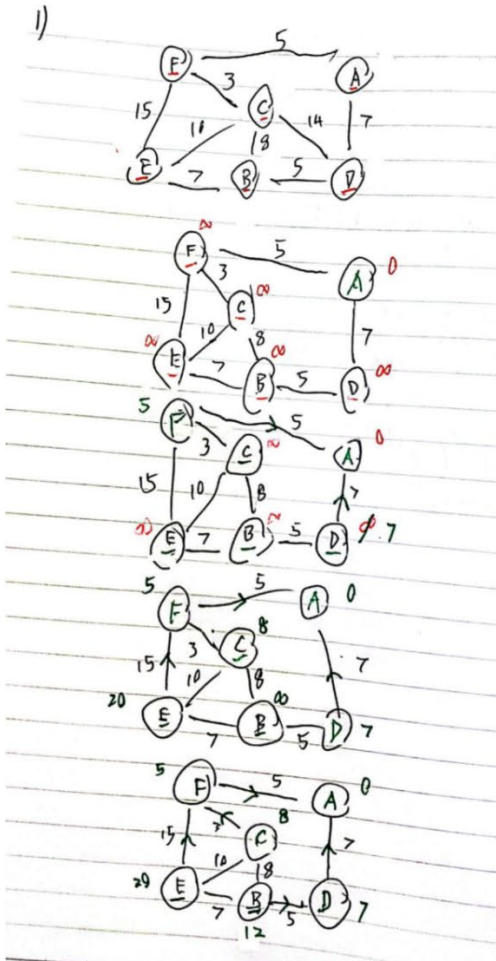 1)
5
F
A
3
C
15
10
14
7
8
E
7
B
5
D
∞
F
5
0
A
3
∞
C
15
10
8
7
∞
E
7
∞
B
5
∞
D
5
F
5
0
A
3
∞
C
15
10
8
7
∞
E
7
∞
B
5
D
7
5
F
5
A
0
3
8
C
15
10
8
7
20
E
7
∞
B
5
D
7
5
F
5
A
0
3
8
C
15
10
8
7
20
E
7
B
5
D
7
12